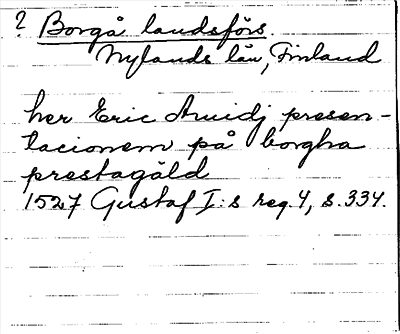 ? Borgå landsförs.
Nylands län, Finland
her Eric Awidj presen-
tacionem på borgha
prestagäld
1527 Gustaf I:s reg. 4, s. 334.